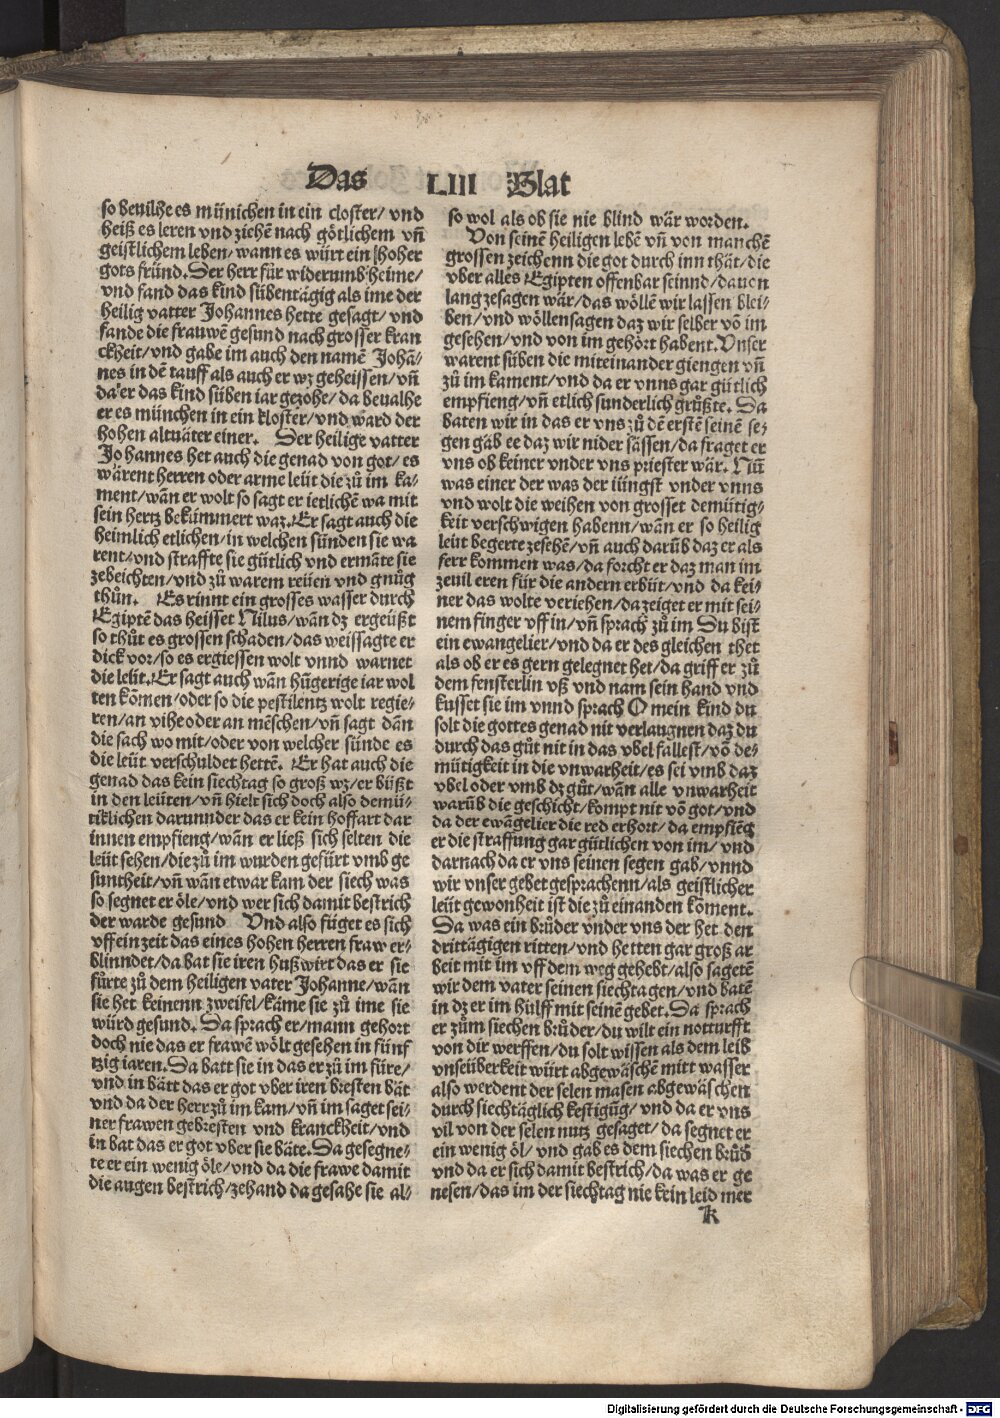 Das LIII Blat
so beuilhe es münichen in ein closter/ vnd
heiß es leren vnd ziehē nach götlichem vñ
geistlichem leben/ wann es würt ein hoher
gots fründ. Der herr für widerumb heime/
vnd fand das kind sübentägig als ime der
heilig vatter Johannes hette gesagt/ vnd
fande die frauwē gesund nach grosser kran
ckheit/ vnd gabe im auch den namē Johā-
nes in dē tauff als auch er wz geheissen/ vñ
da er das kind süben iar gezohe/ da beualhe
er es münchen in ein kloster/ vnd ward der
hohen altuäter einer. Der heilige vatter
Johannes het auch die genad von got/ es
wärent herren oder arme leüt die zů im ka-
ment/ wān er wolt so sagt er ietlichē wa mit
sein hertz bekümmert waz. Er sagt auch die
heimlich etlichen/ in welchen sünden sie wa
rent/ vnd straffte sie gütlich vnd ermāte sie
zebeichten/ vnd zů warem reüen vnd gnůg
thůn. Es rinnt ein grosses wasser durch
Egiptē das heisset Nilus/ wān dz ergeüßt
so thůt es grossen schaden/ das weissagte er
dick vor/ so es ergiessen wolt vnnd warnet
die leüt. Er sagt auch wān hūgerige iar wol
ten kōmen/ oder so die pestilentz wolt regie-
ren/ an vihe oder an mēschen/ vñ sagt dān
die sach wo mit/ oder von welcher sünde es
die leüt verschuldet hettē. Er hat auch die
genad das kein siechtag so groß wz/ er büßt
in den leüten/ vñ hielt sich doch also demü-
tiklichen darunnder das er kein hoffart dar
innen empfieng/ wān er ließ sich selten die
leüt sehen/ die zů im wurden gefürt vmb ge
suntheit/ vñ wān etwar kam der siech was
so segnet er öle/ vnd wer sich damit bestrich
der warde gesund Vnd also füget es sich
vff ein zeit das eines hohen herren fraw er-
blinndet/ da bat sie iren hußwirt das er sie
fürte zů dem heiligen vater Johanne/ wān
sie het keinenn zweifel/ käme sie zů ime sie
würd gesund. Da sprach er/ mann gehort
doch nie das er frawē wölt gesehen in fünf
tzig iaren. Da batt sie in das er zů im füre/
vnd in bätt das er got vber iren bresten bät
vnd da der herr zů im kam/ vñ im saget sei-
ner frawen gebresten vnd kranckheit/ vnd
in bat das er got vber sie bäte. Da gesegne-
te er ein wenig öle/ vnd da die frawe damit
die augen bestrich/ zehand da gesahe sie al-
so wol als ob sie nie blind wär worden.
Von seinē heiligen lebē vñ von manchē
grossen zeichenn die got durch inn thät/ die
vber alles Egipten offenbar seinnd/ dauon
lang zesagen wär/ das wöllē wir lassen blei-
ben/ vnd wöllen sagen daz wir selber vō im
gesehen/ vnd von im gehört habent. Vnser
warent süben die miteinander giengen vñ
zů im kament/ vnd da er vnns gar gütlich
empfieng/ vñ etlich sunderlich grůßte. Da
baten wir in das er vns zů dē erstē seinē se-
gen gäb ee daz wir nider sässen/ da fraget er
vns ob keiner vnder vns priester wär. Nū
was einer der was der iüngst vnder vnns
vnd wolt die weihen von grosset demütig-
keit verschwigen habenn/ wān er so heilig
leüt begerte zesehē/ vñ auch darūb daz er als
ferr kommen was/ da forcht er daz man im
zeuil eren für die andern erbüt/ vnd da kei-
ner das wolte veriehen/ da zeiget er mit sei-
nem finger vff in/ vñ sprach zů im Du bist
ein ewangelier/ vnd da er des gleichen thet
als ob er es gern gelegnet het/ da griff er zů
dem fensterlin vß vnd nam sein hand vnd
kusset sie im vnnd sprach O mein kind du
solt die gottes genad nit verlaugnen daz du
durch das gůt nit in das vbel fallest/ vō de-
mütigkeit in die vnwarheit/ es sei vmb daz
vbel oder vmb dz gůt/ wān alle vnwarheit
warūb die geschicht/ kompt nit vō got/ vnd
da der ewāgelier die red erhort/ da empfiēg
er die straffung gar gütlichen von im/ vnd
darnach da er vns seinen segen gab/ vnnd
wir vnser gebet gesprachenn/ als geistlicher
leüt gewonheit ist die zů einanden kōment.
Da was ein brůder vnder vns der het den
drittägigen ritten/ vnd hetten gar groß ar
beit mit im vff dem weg gehebt/ also sagetē
wir dem vater seinen siechtagen/ vnd batē
in dz er im hülff mit seinē gebet. Da sprach
er zům siechen brůder/ du wilt ein notturfft
von dir werffen/ du solt wissen als dem leib
vnseüberkeit würt abgewäschē mitt wasser
also werdent der selen masen abgewäschen
durch siechtäglich kestigūg/ vnd da er vns
vil von der selen nutz gesaget/ da segnet er
ein wenig öl/ vnd gab es dem siechen brůd
vnd da er sich damit bestrich/ da was er ge
nesen/ das im der siechtag nie kein leid mer
k
Digitalisierung gefördert durch die Deutsche Forschungsgemeinschaft - DFG